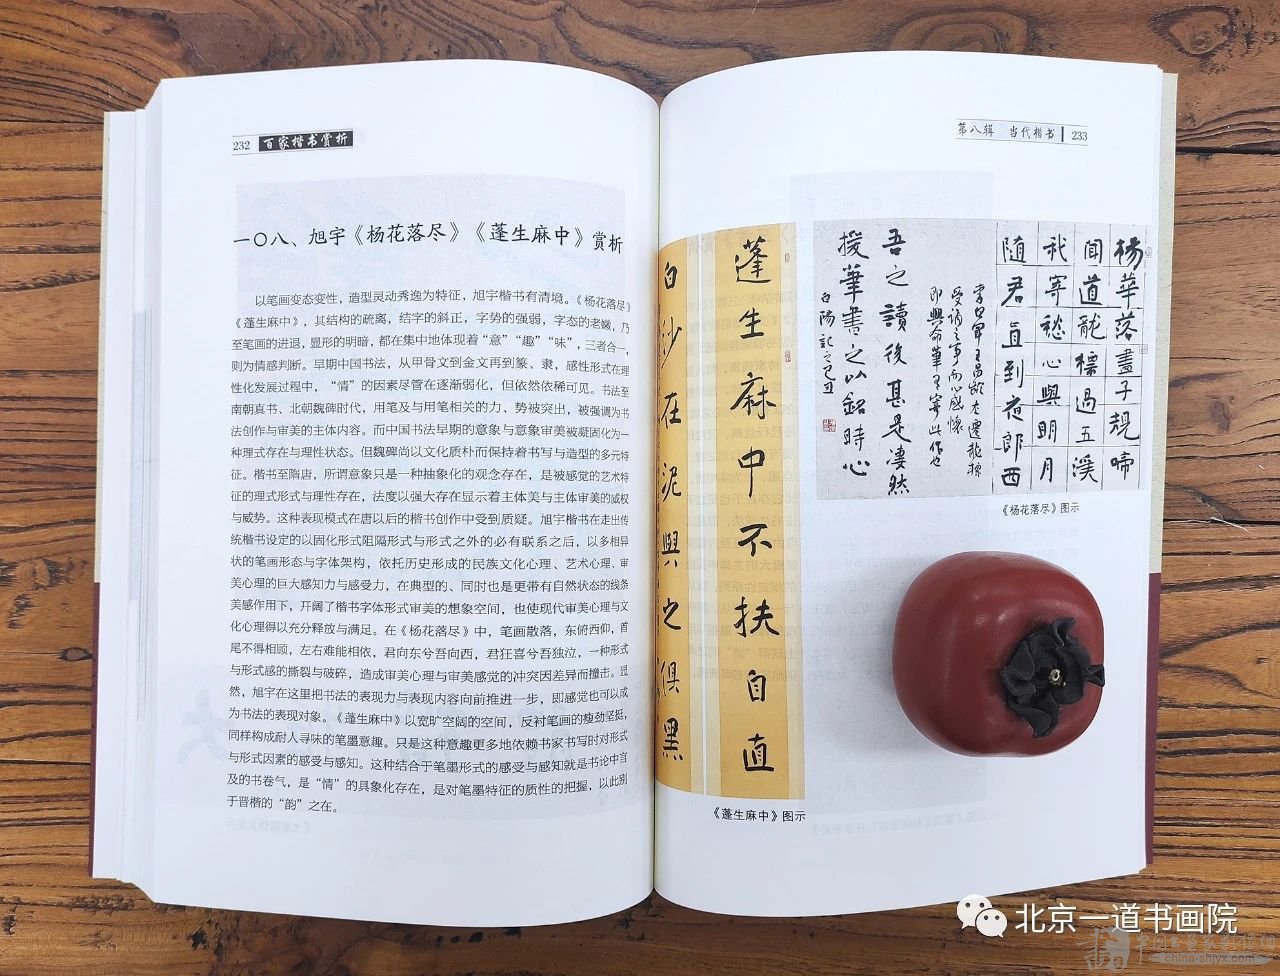 232 百家楷书赏析
一〇八、旭宇《杨花落尽》《蓬生麻中》赏析
以笔画变态变性，造型灵动秀逸为特征，旭宇楷书有清境。《杨花落尽》
《蓬生麻中》，其结构的疏离，结字的斜正，字势的强弱，字态的老嫩，乃
至笔画的进退，显形的明暗，都在集中地体现着“意”“趣”“味”，三者合一，
则为情感判断。早期中国书法，从甲骨文到金文再到篆、隶，感性形式在理
性化发展过程中，“情”的因素尽管在逐渐弱化，但依然依稀可见。书法至
南朝真书、北朝魏碑时代，用笔及与用笔相关的力、势被突出，被强调为书
法创作与审美的主体内容。而中国书法早期的意象与意象审美被凝固化为一
种理式存在与理性状态。但魏碑尚以文化质朴而保持着书写与造型的多元特
征。楷书至隋唐，所谓意象只是一种抽象化的观念存在，是被感觉的艺术特
征的理式形式与理性存在，法度以强大存在显示着主体美与主体审美的威权
与威势。这种表现模式在唐以后的楷书创作中受到质疑。旭宇楷书在走出传
统楷书设定的以固化形式阻隔形式与形式之外的必有联系之后，以多相异
状的笔画形态与字体架构，依托历史形成的民族文化心理、艺术心理、审
美心理的巨大感知力与感受力，在典型的、同时也是更带有自然状态的线条
美感作用下，开阔了楷书字体形式审美的想象空间，也使现代审美心理与文
化心理得以充分释放与满足。在《杨花落尽》中，笔画散落，东俯西仰，首
尾不得相顾，左右难能相依，君向东兮吾向西，君狂喜兮吾独泣，一种形式
与形式感的撕裂与破碎，造成审美心理与审美感觉的冲突因差异而撞击。显
然，旭宇在这里把书法的表现力与表现内容向前推进一步，即感觉也可以成
为书法的表现对象。《蓬生麻中》以宽旷空阔的空间，反衬笔画的瘦劲坚挺，
同样构成耐人寻味的笔墨意趣。只是这种意趣更多地依赖书家书写时对形式
与形式因素的感受与感知。这种结合于笔墨形式的感受与感知就是书论中言
及的书卷气，是“情”的具象化存在，是对笔墨特征的质性的把握，以此别
于晋楷的“韵”之在。
第八辑 当代楷书 233
楊華落盡子規啼
聞道龍標過五溪
我寄愁心與明月
随君直到夜郎西
吾之讀後甚是凄然
援筆書之以銘時心
《杨花落尽》图示
蓬生麻中不扶自直
白沙在泥與之俱黑
《蓬生麻中》图示
北京一道书画院
china-shjyx.com